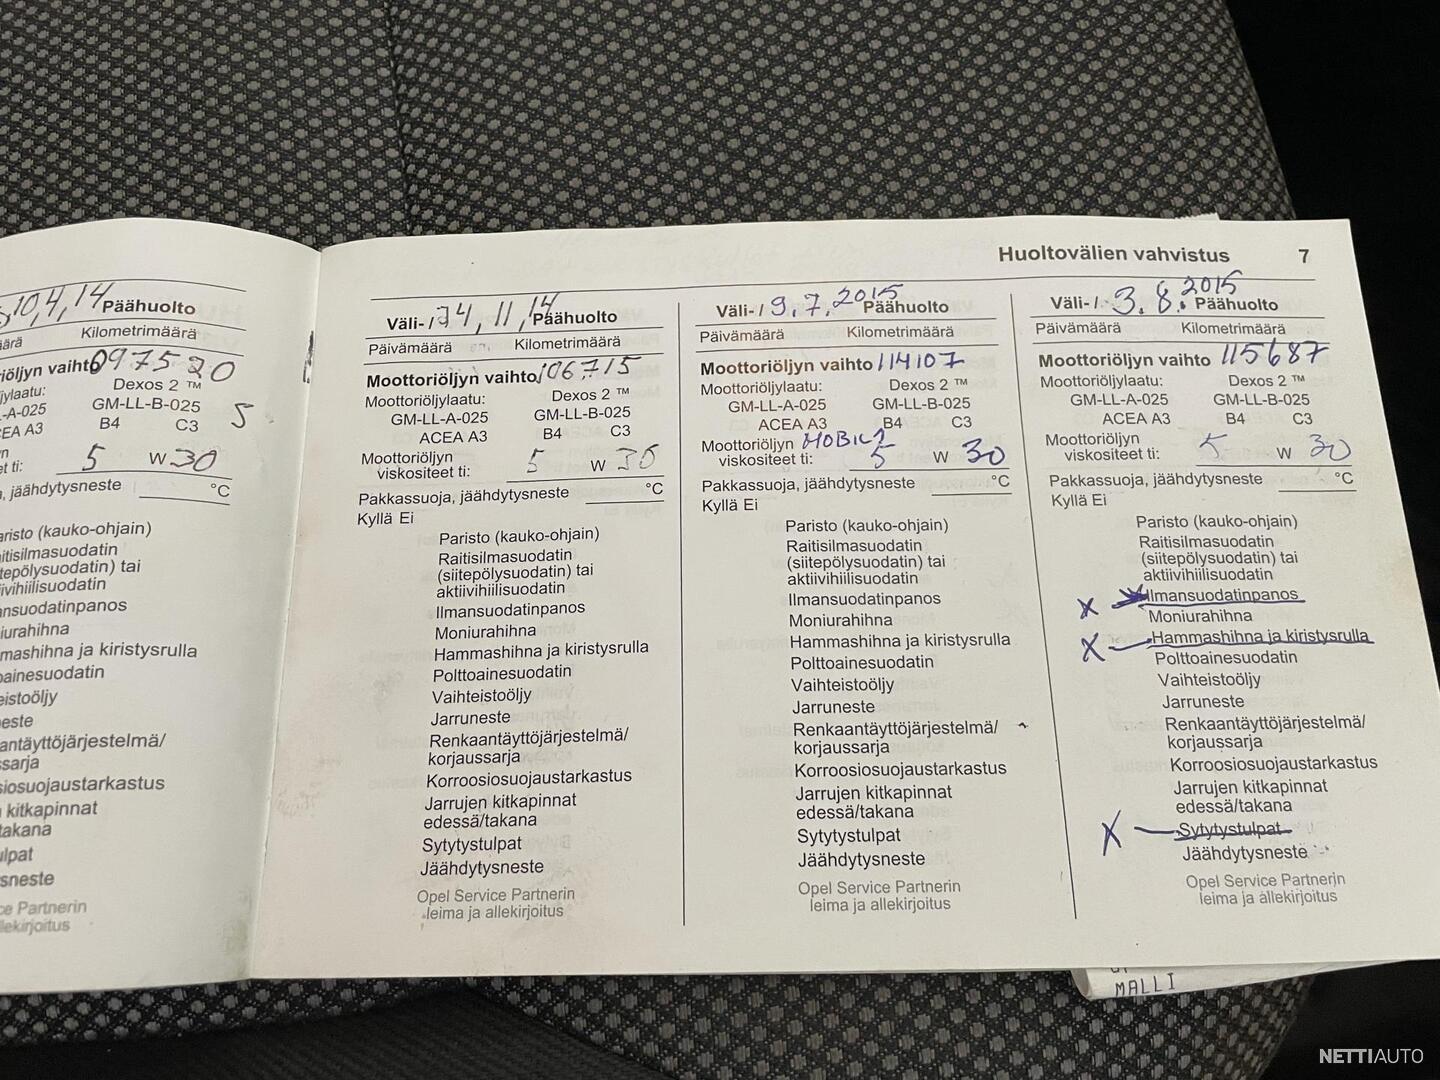 Huoltovälien vahvistus 7
10,4,14 Päähuolto
Kilometrimäärä
097520
Dexos 2 ™
GM-LL-B-025
B4 C3 5
5 W 30
jäähdytysneste °C
(kauko-ohjain)
(siitepölysuodatin) tai
Hammashihna ja kiristysrulla
Väli- / 11,14 Päähuolto
Päivämäärä Kilometrimäärä
Moottoriöljyn vaihto 106715
Moottoriöljylaatu: Dexos 2 ™
GM-LL-A-025 GM-LL-B-025
ACEA A3 B4 C3
Moottoriöljyn
viskositeet ti: 5 W 30
Pakkassuoja, jäähdytysneste °C
Kyllä Ei
Paristo (kauko-ohjain)
Raitisilmasuodatin
(siitepölysuodatin) tai
aktiivihiilisuodatin
Ilmansuodatinpanos
Moniurahihna
Hammashihna ja kiristysrulla
Polttoainesuodatin
Vaihteistoöljy
Jarruneste
Renkaantäyttöjärjestelmä/
korjaussarja
Korroosiosuojaustarkastus
Jarrujen kitkapinnat
edessä/takana
Sytytystulpat
Jäähdytysneste
Opel Service Partnerin
leima ja allekirjoitus
Väli- / 9.7.2015 Päähuolto
Päivämäärä Kilometrimäärä
Moottoriöljyn vaihto 114107
Moottoriöljylaatu: Dexos 2 ™
GM-LL-A-025 GM-LL-B-025
ACEA A3 B4 C3
Moottoriöljyn MOBIL 1
viskositeet ti: 5 W 30
Pakkassuoja, jäähdytysneste °C
Kyllä Ei
Paristo (kauko-ohjain)
Raitisilmasuodatin
(siitepölysuodatin) tai
aktiivihiilisuodatin
Ilmansuodatinpanos
Moniurahihna
Hammashihna ja kiristysrulla
Polttoainesuodatin
Vaihteistoöljy
Jarruneste
Renkaantäyttöjärjestelmä/
korjaussarja
Korroosiosuojaustarkastus
Jarrujen kitkapinnat
edessä/takana
Sytytystulpat
Jäähdytysneste
Opel Service Partnerin
leima ja allekirjoitus
Väli- / 3.8.2015 Päähuolto
Päivämäärä Kilometrimäärä
Moottoriöljyn vaihto 115687
Moottoriöljylaatu: Dexos 2 ™
GM-LL-A-025 GM-LL-B-025
ACEA A3 B4 C3
Moottoriöljyn
viskositeet ti: 5 W 30
Pakkassuoja, jäähdytysneste °C
Kyllä Ei
Paristo (kauko-ohjain)
Raitisilmasuodatin
(siitepölysuodatin) tai
aktiivihiilisuodatin
X Ilmansuodatinpanos
Moniurahihna
X Hammashihna ja kiristysrulla
Polttoainesuodatin
Vaihteistoöljy
Jarruneste
Renkaantäyttöjärjestelmä/
korjaussarja
Korroosiosuojaustarkastus
Jarrujen kitkapinnat
edessä/takana
X Sytytystulpat
Jäähdytysneste
Opel Service Partnerin
leima ja allekirjoitus
MALLI
NETTIAUTO